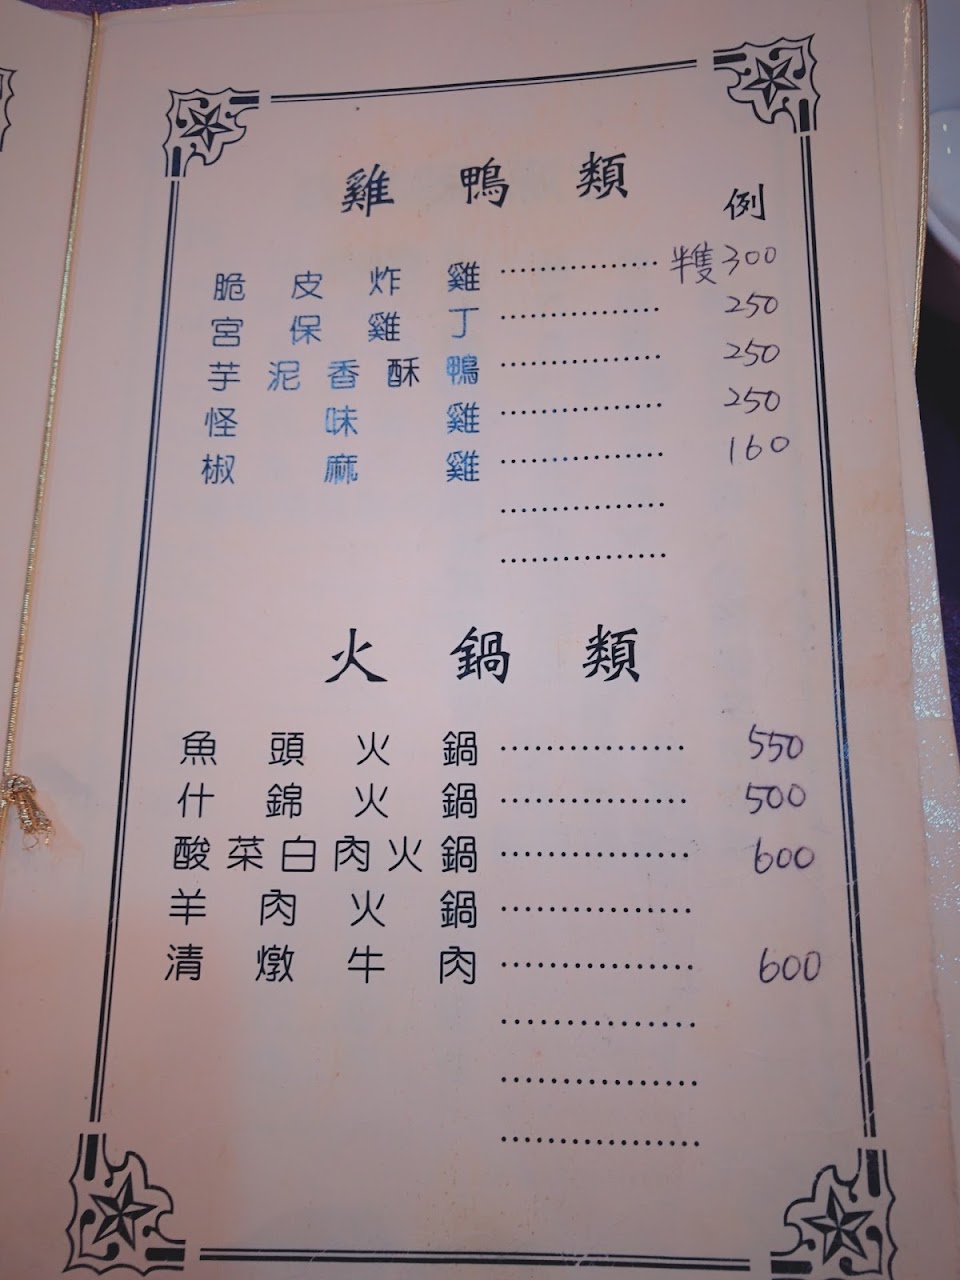 雞鴨類
例
脆皮炸雞 ............... 半隻300
宮保雞丁 ............... 250
芋泥香酥鴨 ............... 250
怪味雞 ............... 250
椒麻雞 ............... 160
火鍋類
魚頭火鍋 ............... 550
什錦火鍋 ............... 500
酸菜白肉火鍋 ............... 600
羊肉火鍋 ...............
清燉牛肉 ............... 600